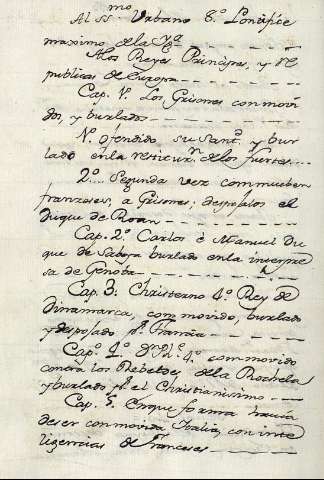 Al SS.mo Urbano 8.º Pontifice
maximo de la Yg.ª
A los Reyes Principes, y Re
publicas de Europa
Cap. 1.º Los Grisones conmovi
dos, y burlados
1.º Ofendido su Sant.d y bur
lado en la restitu.n de los fuertes
2.º Segunda vez conmueben
franzeses, a Grisones; despojolos el
Duque de Roan
Cap. 2.º Carlos e Manuel Du
que de Saboya burlado en la interpre
sa de Genoba
Cap. 3.º Christerno 4.º Rey de
Dinamarca, conmovido, burlado
y despojado p.r Francia
Cap.º 4.º D. Ph.e 4.º conmovido
contra los Rebeldes de la Rochela
y burlado p.r el Christianissimo
Cap. 5. En que forma havia
de ser conmovida Italia, con inte
ligencias de Franceses